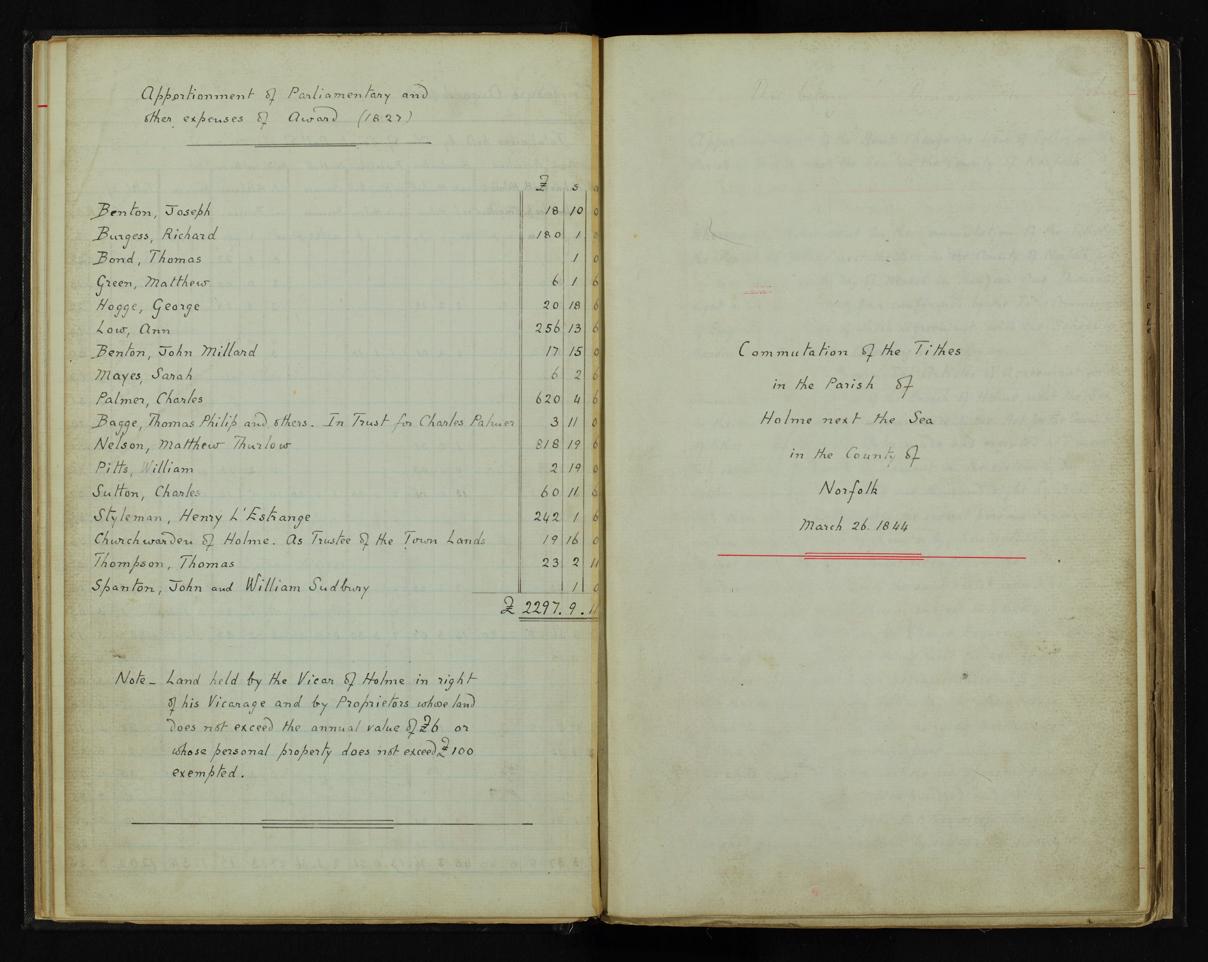 Apportionment of Parliamentary and
other expenses of Award (1827)
£ s
Benton, Joseph 18 10 0
Burgess, Richard 180 1 0
Bond, Thomas 1 0
Green, Matthew 6 1 6
Hogge, George 20 18 6
Low, Ann 256 13 6
Benton, John Millard 17 15 0
Mayes, Sarah 6 2 6
Palmer, Charles 620 4 6
Bagge, Thomas Philip and others. In Trust for Charles Palmer 3 11 0
Nelson, Matthew Thurlow 818 19 6
Pitts, William 2 19 0
Sutton, Charles 60 11
Styleman, Henry L'Estrange 242 1 6
Churchwarden of Holme. As Trustee of the Town Lands 19 16 0
Thompson, Thomas 23 2 11
Spanton, John and William Sudbury 1 0
£ 2297. 9. 11
Note - Land held by the Vicar of Holme in right
of his Vicarage and by Proprietors whose land
does not exceed the annual value of £6 or
whose personal property does not exceed £100
exempted.
Commutation of the Tithes
in the Parish of
Holme next the Sea
in the County of
Norfolk
March 26. 1844